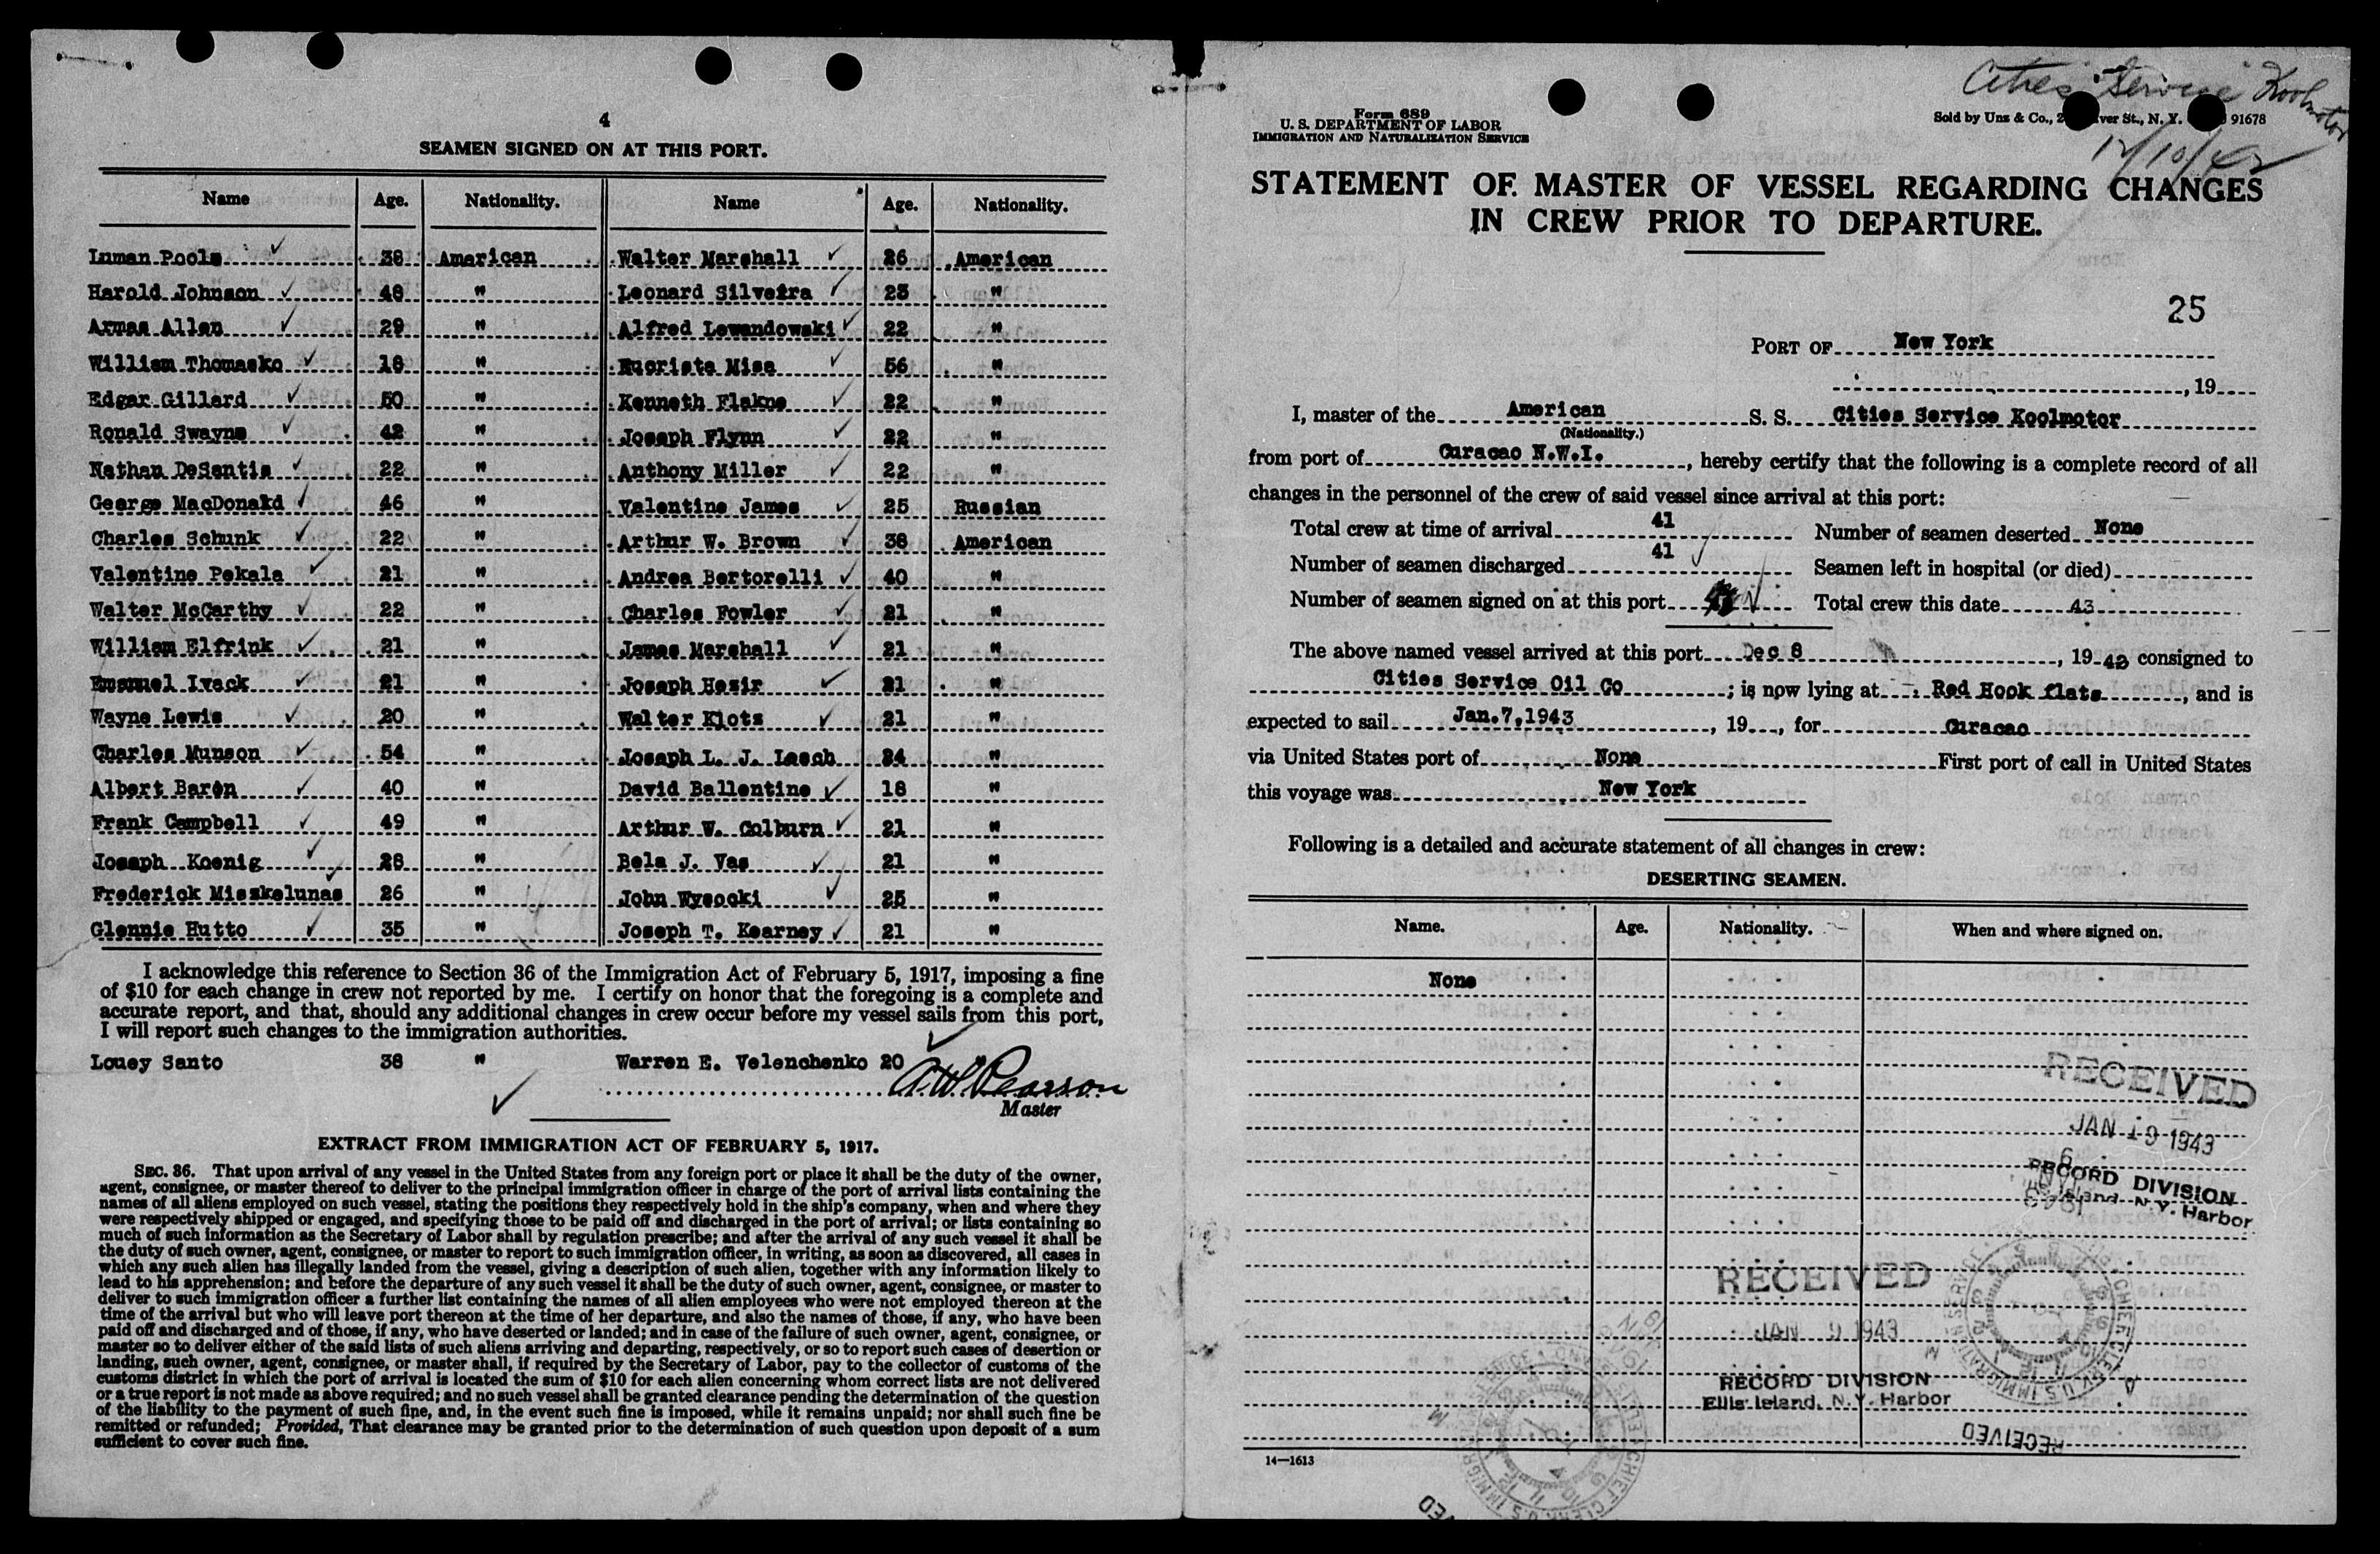 4
SEAMEN SIGNED ON AT THIS PORT.
Name Age. Nationality. Name Age. Nationality.
Inman Poole 38 American Walter Marshall 26 American
Harold Johnson 48 " Leonard Silveira 23 "
Armas Allen 29 " Alfred Lewandowski 22 "
William Thomasko 18 " Eucriste Misa 56 "
Edgar Gillard 50 " Kenneth Flakne 22 "
Ronald Swayne 42 " Joseph Flynn 22 "
Nathan DeSantis 22 " Anthony Miller 22 "
George MacDonald 46 " Valentine James 25 Russian
Charles Schunk 22 " Arthur W. Brown 38 American
Valentine Pekala 21 " Andrea Bertorelli 40 "
Walter McCarthy 22 " Charles Fowler 21 "
William Elfrink 21 " James Marshall 21 "
Emanuel Ivack 21 " Joseph Hezir 21 "
Wayne Lewis 20 " Walter Klotz 21 "
Charles Munson 54 " Joseph L. J. Lesch 24 "
Albert Baron 40 " David Ballentine 18 "
Frank Campbell 49 " Arthur W. Colburn 21 "
Joseph Koenig 28 " Bela J. Vas 21 "
Frederick Miszkelunas 26 " John Wysocki 25 "
Glennie Hutto 35 " Joseph T. Kearney 21 "
I acknowledge this reference to Section 36 of the Immigration Act of February 5, 1917, imposing a fine
of $10 for each change in crew not reported by me. I certify on honor that the foregoing is a complete and
accurate report, and that, should any additional changes in crew occur before my vessel sails from this port,
I will report such changes to the immigration authorities.
Louey Santo 38 " Warren E. Velenchenko 20 "
A. W. Pearson
Master
EXTRACT FROM IMMIGRATION ACT OF FEBRUARY 5, 1917.
SEC. 36. That upon arrival of any vessel in the United States from any foreign port or place it shall be the duty of the owner,
agent, consignee, or master thereof to deliver to the principal immigration officer in charge of the port of arrival lists containing the
names of all aliens employed on such vessel, stating the positions they respectively hold in the ship's company, when and where they
were respectively shipped or engaged, and specifying those to be paid off and discharged in the port of arrival; or lists containing so
much of such information as the Secretary of Labor shall by regulation prescribe; and after the arrival of any such vessel it shall be
the duty of such owner, agent, consignee, or master to report to such immigration officer, in writing, as soon as discovered, all cases in
which any such alien has illegally landed from the vessel, giving a description of such alien, together with any information likely to
lead to his apprehension; and before the departure of any such vessel it shall be the duty of such owner, agent, consignee, or master to
deliver to such immigration officer a further list containing the names of all alien employees who were not employed thereon at the
time of the arrival but who will leave port thereon at the time of her departure, and also the names of those, if any, who have been
paid off and discharged and of those, if any, who have deserted or landed; and in case of the failure of such owner, agent, consignee, or
master so to deliver either of the said lists of such aliens arriving and departing, respectively, or so to report such cases of desertion or
landing, such owner, agent, consignee, or master shall, if required by the Secretary of Labor, pay to the collector of customs of the
customs district in which the port of arrival is located the sum of $10 for each alien concerning whom correct lists are not delivered
or a true report is not made as above required; and no such vessel shall be granted clearance pending the determination of the question
of the liability to the payment of such fine, and, in the event such fine is imposed, while it remains unpaid; nor shall such fine be
remitted or refunded; Provided, That clearance may be granted prior to the determination of such question upon deposit of a sum
sufficient to cover such fine.
Cities Service Koolmotor
12/10/42
Form 689
U. S. DEPARTMENT OF LABOR
IMMIGRATION AND NATURALIZATION SERVICE
Sold by Unz & Co., 2 ver St., N. Y. 91678
STATEMENT OF MASTER OF VESSEL REGARDING CHANGES
IN CREW PRIOR TO DEPARTURE.
25
PORT OF New York
, 19
I, master of the American S. S. Cities Service Koolmotor
(Nationality.)
from port of Curacao N.W.I. , hereby certify that the following is a complete record of all
changes in the personnel of the crew of said vessel since arrival at this port:
Total crew at time of arrival 41 Number of seamen deserted None
Number of seamen discharged 41 Seamen left in hospital (or died)
Number of seamen signed on at this port Total crew this date 43
The above named vessel arrived at this port Dec 8 , 19 42 consigned to
Cities Service Oil Co ; is now lying at Red Hook flats , and is
expected to sail Jan.7,1943 , 19 , for Curacao
via United States port of None First port of call in United States
this voyage was New York
Following is a detailed and accurate statement of all changes in crew:
DESERTING SEAMEN.
Name. Age. Nationality. When and where signed on.
None
RECEIVED
JAN 19 1943
RECORD DIVISION
Island N.Y. Harbor
RECEIVED
JAN 9 1943
RECORD DIVISION
Ellis Island, N.Y. Harbor
RECEIVED
14—1613